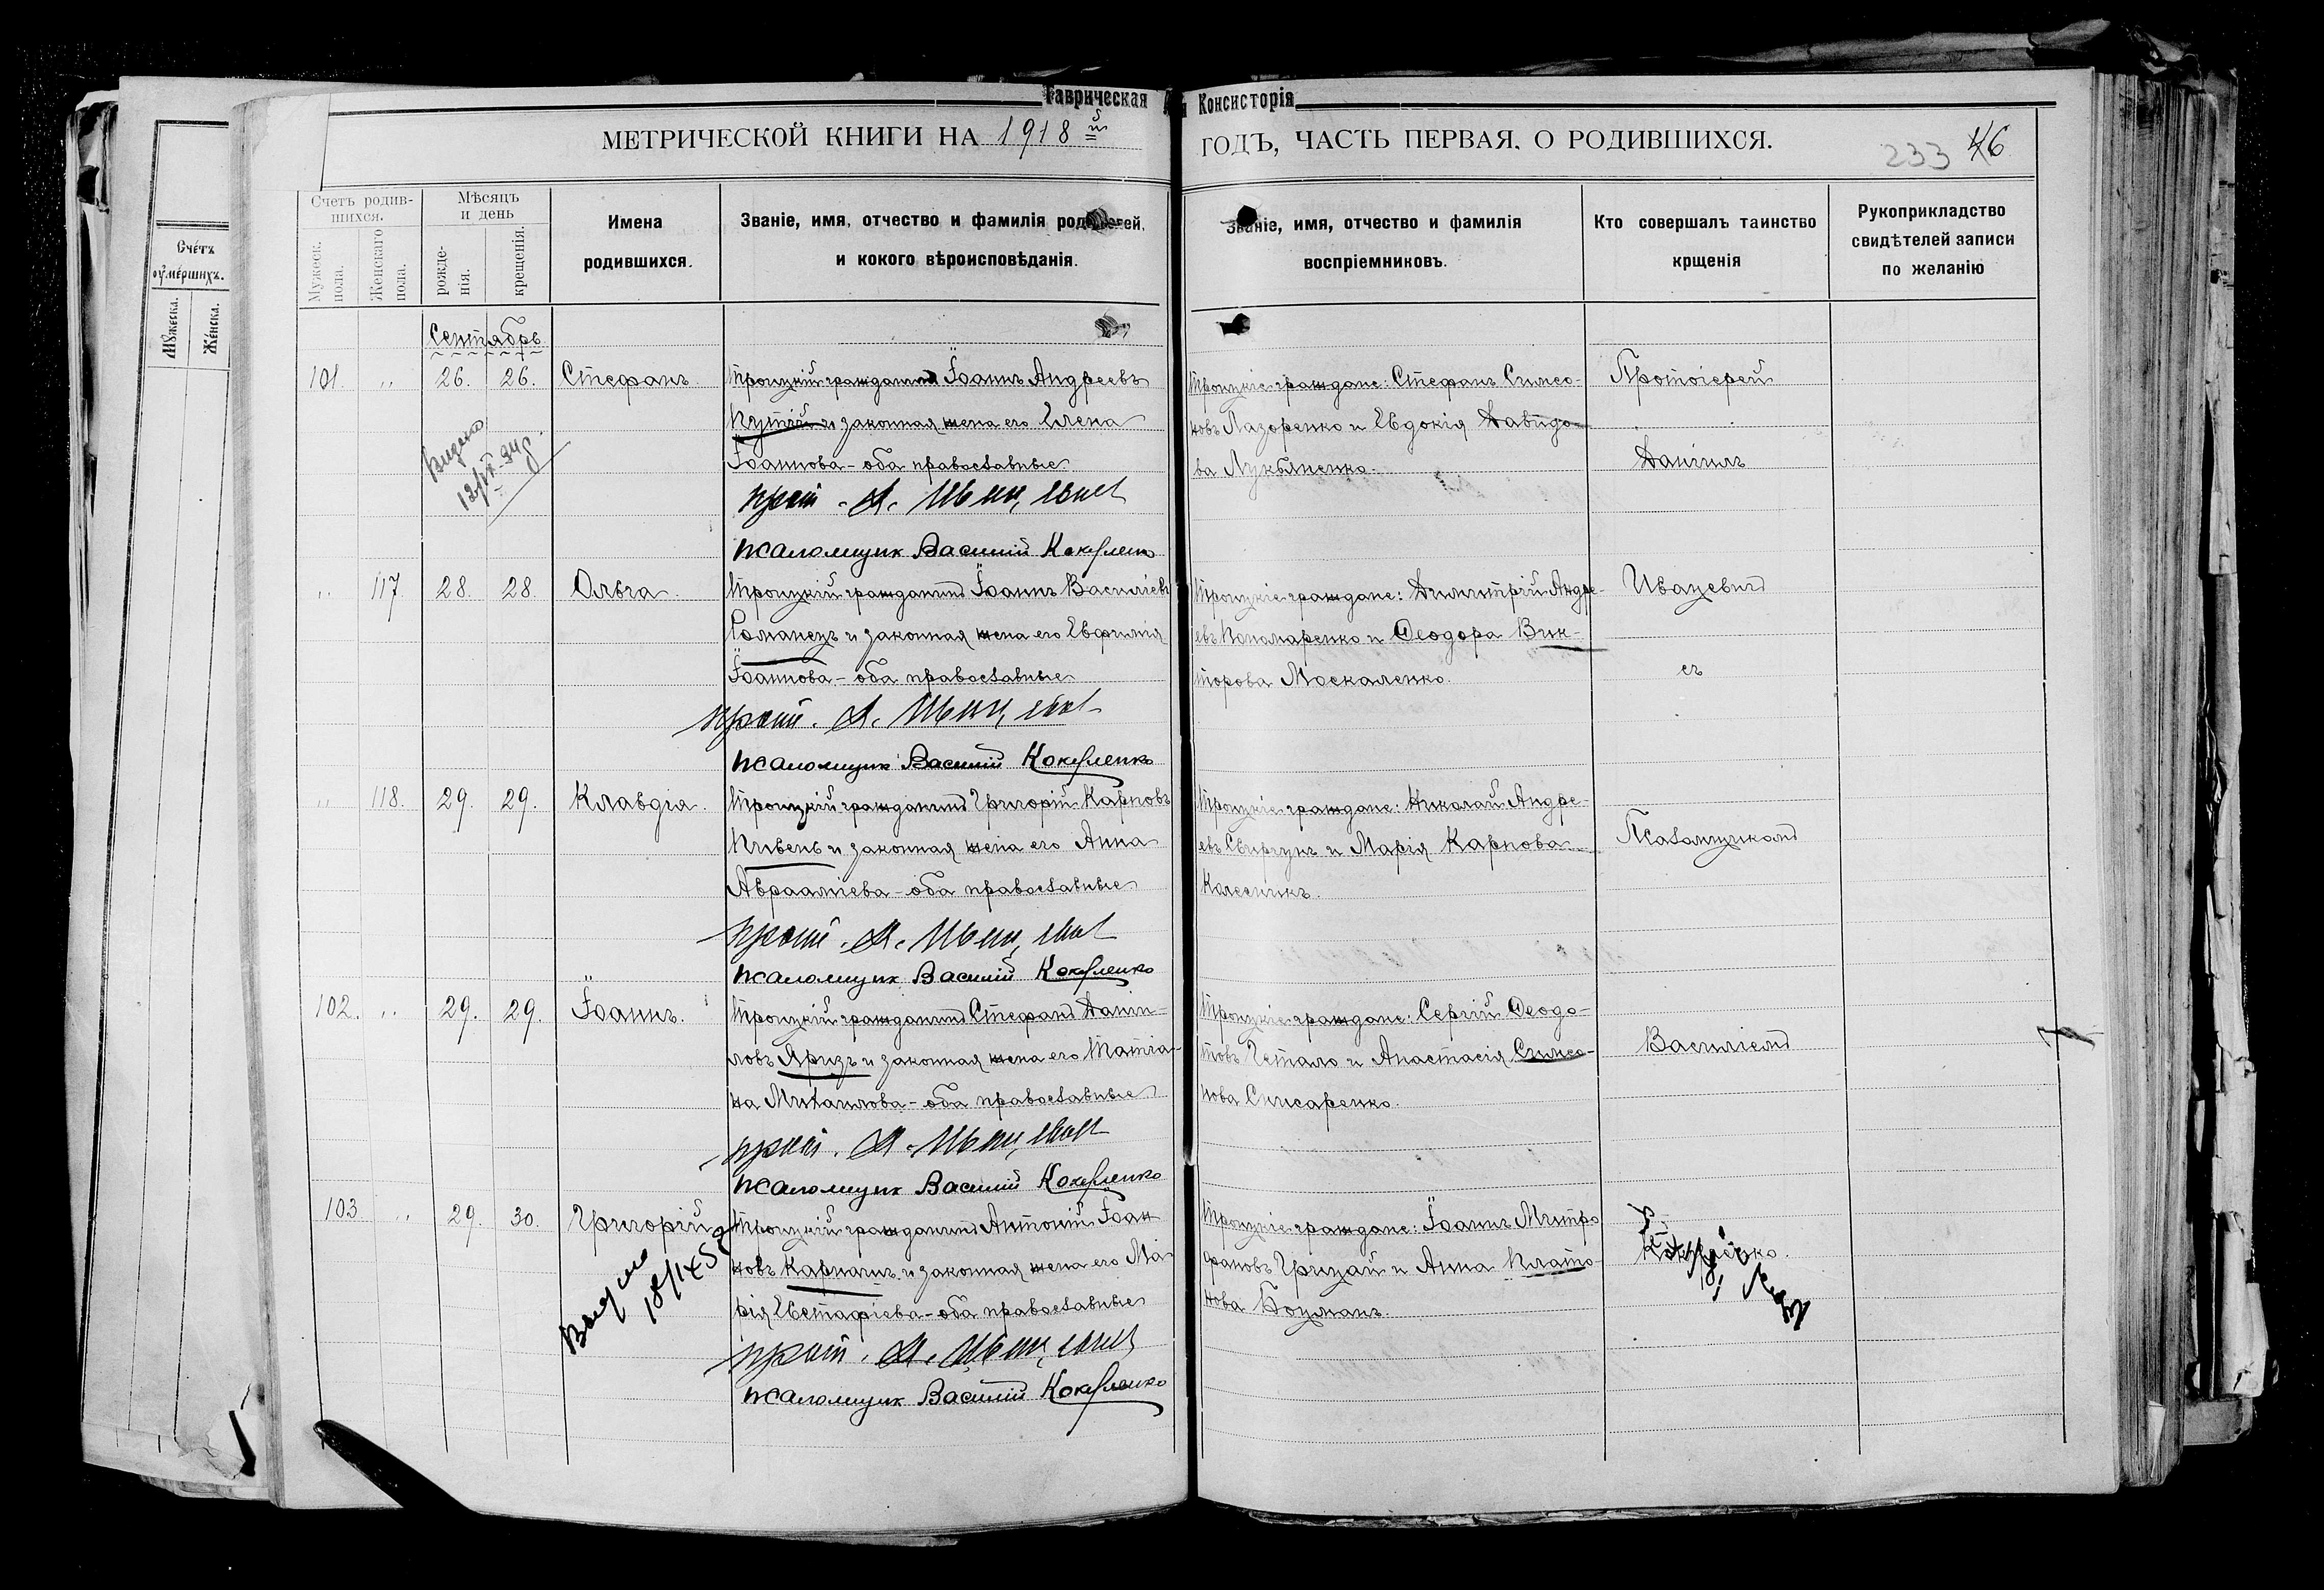 Таврическая
Консисторія
МЕТРИЧЕСКОЙ КНИГИ НА 1918 й
ГОДЪ, ЧАСТЬ ПЕРВАЯ. О РОДИВШИХСЯ.
233 46
Счётъ
оумершихъ.
Мꙋжеска.
Женска.
Счетъ родив-
шихся.
Мужеск.
пола.
Женскаго
пола.
Мѣсяцъ
и день
рожде-
нія.
крещенія.
Имена
родившихся.
Званіе, имя, отчество и фамилія родителей,
и кокого вѣроисповѣданія.
Званіе, имя, отчество и фамилія
воспріемниковъ.
Кто совершалъ таинство
крщенія
Рукоприкладство
свидѣтелей записи
по желанію
Сентябрь
101. " 26. 26. Стефанъ.
Троицкій гражданинъ Іоаннъ Андреевъ
Кутній и законная жена его Елена
Іоаннова - оба православные
прот. Д. Иваницкій
псаломщик Василій
Троицкіе граждане: Стефанъ Симео-
новъ Лазоренко и Евдокія Давидо-
ва Лукьяненко.
12/IV-94г.
" 117 28. 28. Ольга.
Троицкій гражданинъ Іоаннъ Василіевъ
Романецъ и законная жена его Евфимія
Іоаннова - оба православные
прот. Д.
псаломщик Василій
Троицкіе граждане: Димитрій Андре-
евъ Пономаренко и Ѳеодора Вик-
торова Москаленко.
" 118. 29. 29. Клавдія.
Троицкій гражданинъ Григорій Карповъ
Кивень и законная жена его Анна
Авраамiева - оба православные
прот. Д.
псаломщик Василій
Троицкіе граждане: Николай Андре-
евъ Свиргунъ и Марія Карпова
Колесникъ.
102. " 29. 29. Іоаннъ.
Троицкій гражданинъ Стефанъ Даніи-
ловъ Яризъ и законная жена его Татіа-
на Михаилова - оба православные
прот. Д.
псаломщик Василій
Троицкіе граждане: Сергій Ѳеодо-
товъ Четало и Анастасія Симео-
нова Снисаренко.
103 " 29. 30. Григорій
Троицкій гражданинъ Антоній Іоан-
новъ Карначъ и законная жена его Ма-
рія Евстафіева - оба православные
прот. Д.
псаломщик Василій
Троицкіе граждане: Іоаннъ Митро-
фановъ Грицай и Анна Плато-
нова Боцманъ.
Протоіерей
Даніилъ
съ
Псаломщикомъ
Василіемъ